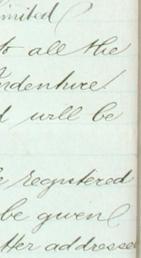 mited
to all the
ndenture.
d will be
registered
be given
tter addresse